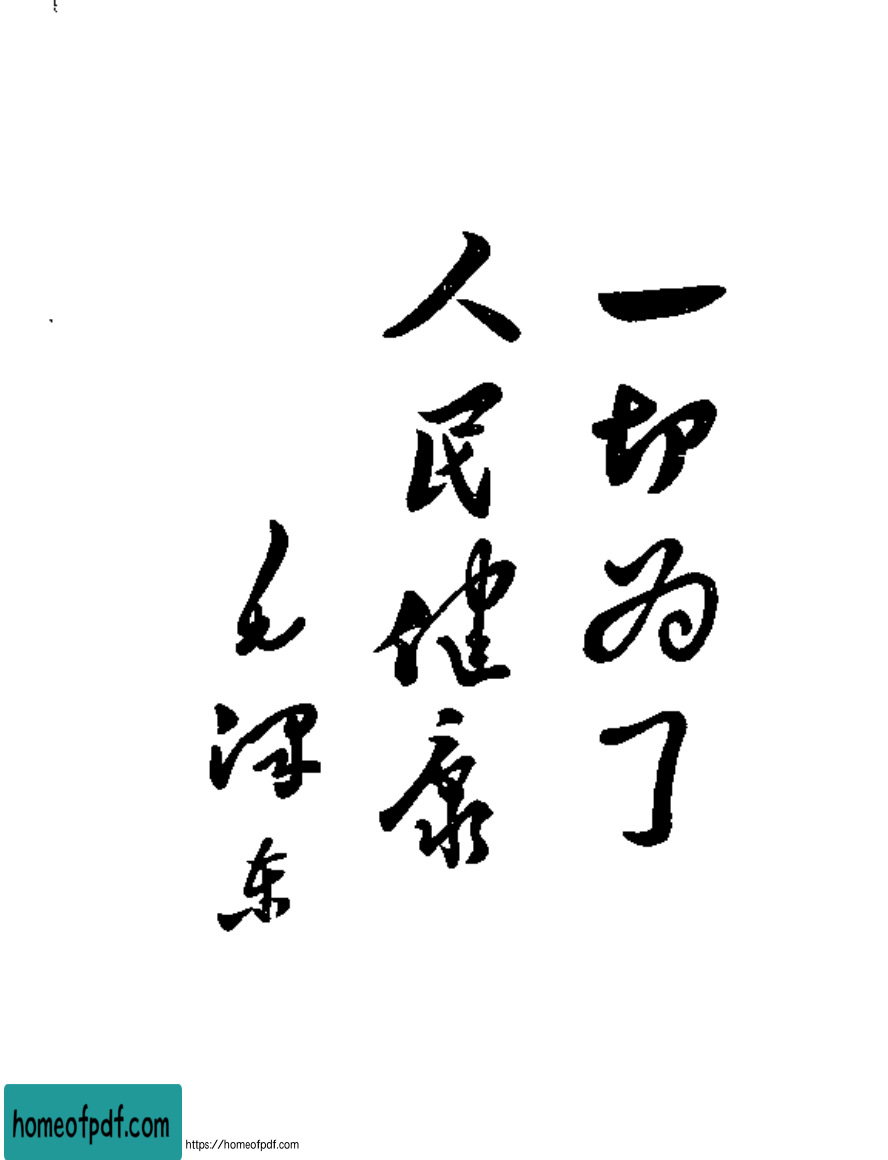 一切为了
人民健康
毛泽东
homeofpdf.com
https://homeofpdf.com